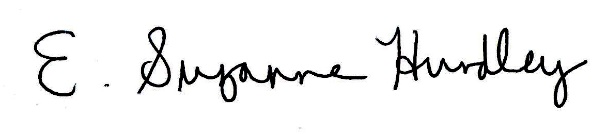 E. Suzanne Hurdley